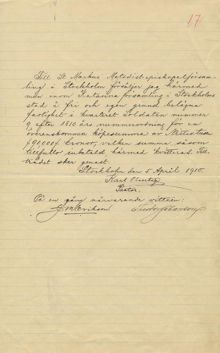 17.
Till St. Markus Metodistepiskopalförsam-
ling i Stockholm försäljer jag härmed
min inom Katarina församling i Stockholms
stad å fri och egen grund belägna
fastighet i kvarteret Soldaten nummer
9 efter 1810 års nummerordning för en
överenskommen köpesumma av Nittiotusen
(90,000) kronor, vilken summa såsom
till fullo erhållen, härmed kvitteras.
sker genast.
Stockholm den 5 April 1910.
Karl
Pastor.
På en gång närvarande vittnen: